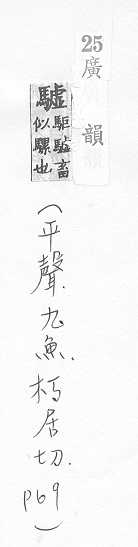 25廣韻
驉
驅驉畜
似騾也
(平聲.九魚.朽居切.p69)